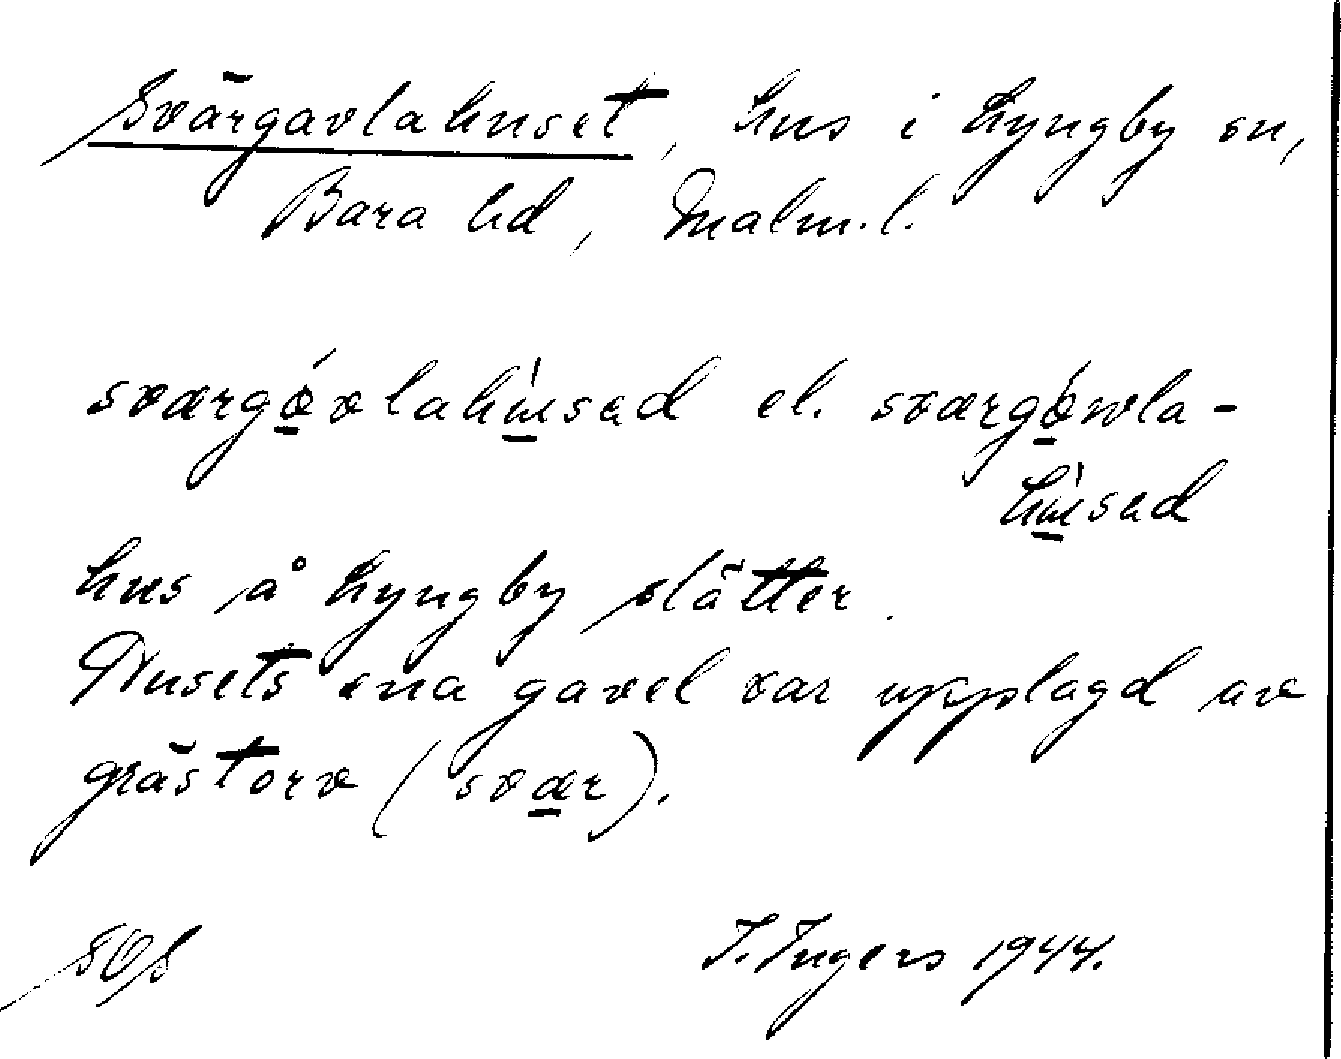 Svärgavlahuset, hus i Lyngby sn,
Bara hd, Malm.l.
sværgǿvlahúsed el. sværgǿwla-
húsed
hus å Lyngby slätter.
Husets ena gavel var upplagd av
grästorv (svær).
SOS
I. Ingers 1944.